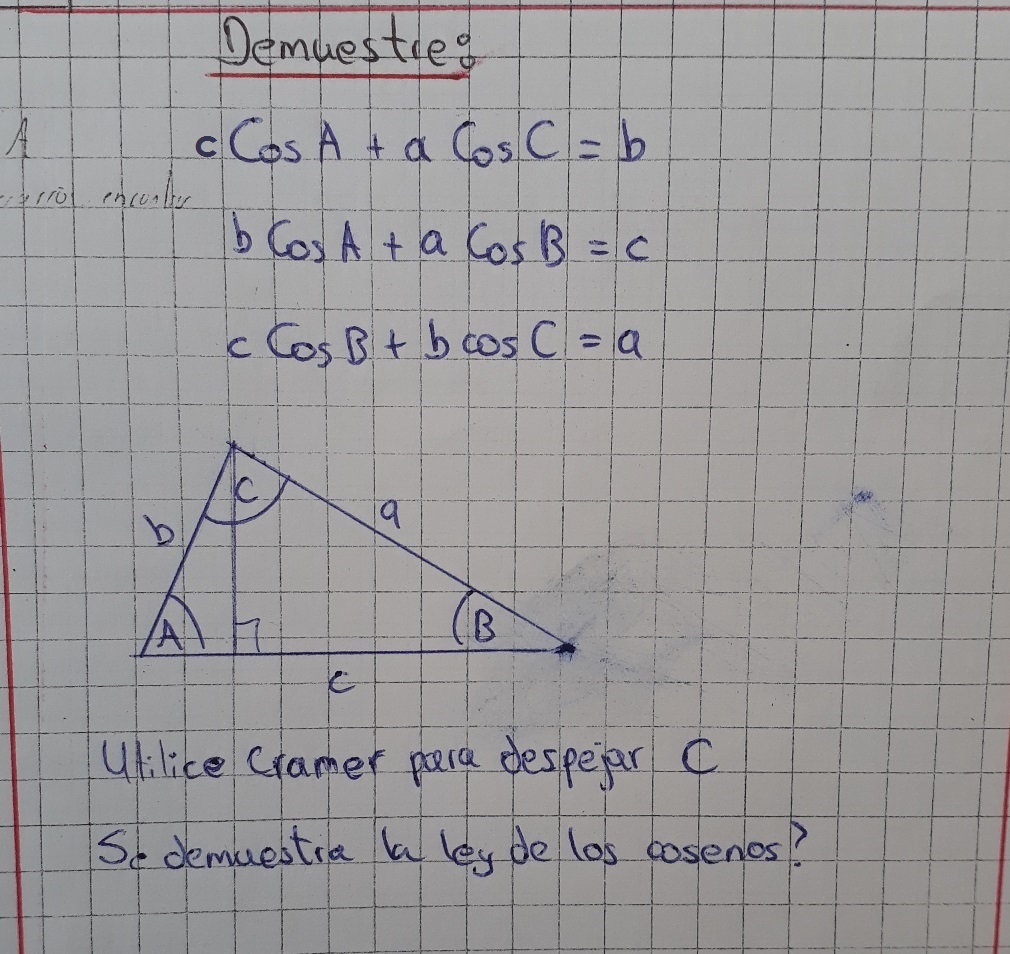 Demuestre:
A
c Cos A + a Cos C = b
b Cos A + a Cos B = c
c Cos B + b cos C = a
C
b
a
A
B
c
Utilice Cramer para despejar C
Se demuestra la ley de los cosenos?